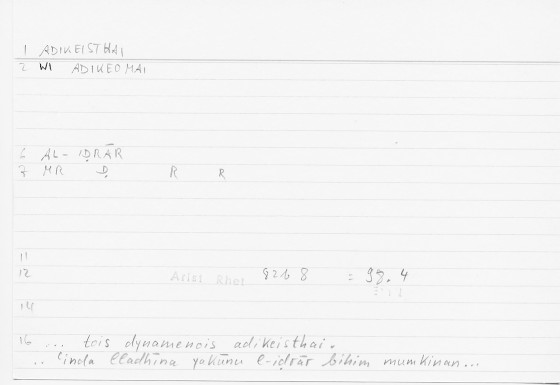 1 ADIKEISTHAI
2 WI ADIKEOMAI
6 AL-IḌRĀR
7 MR Ḍ R R
11
12 Arist Rhet 92b 8 = 98.4
14
16 ... tois dynamenois adikeisthai.
.. ʿinda lladhīna yakūnu l-iḍrār bihim mumkinan...